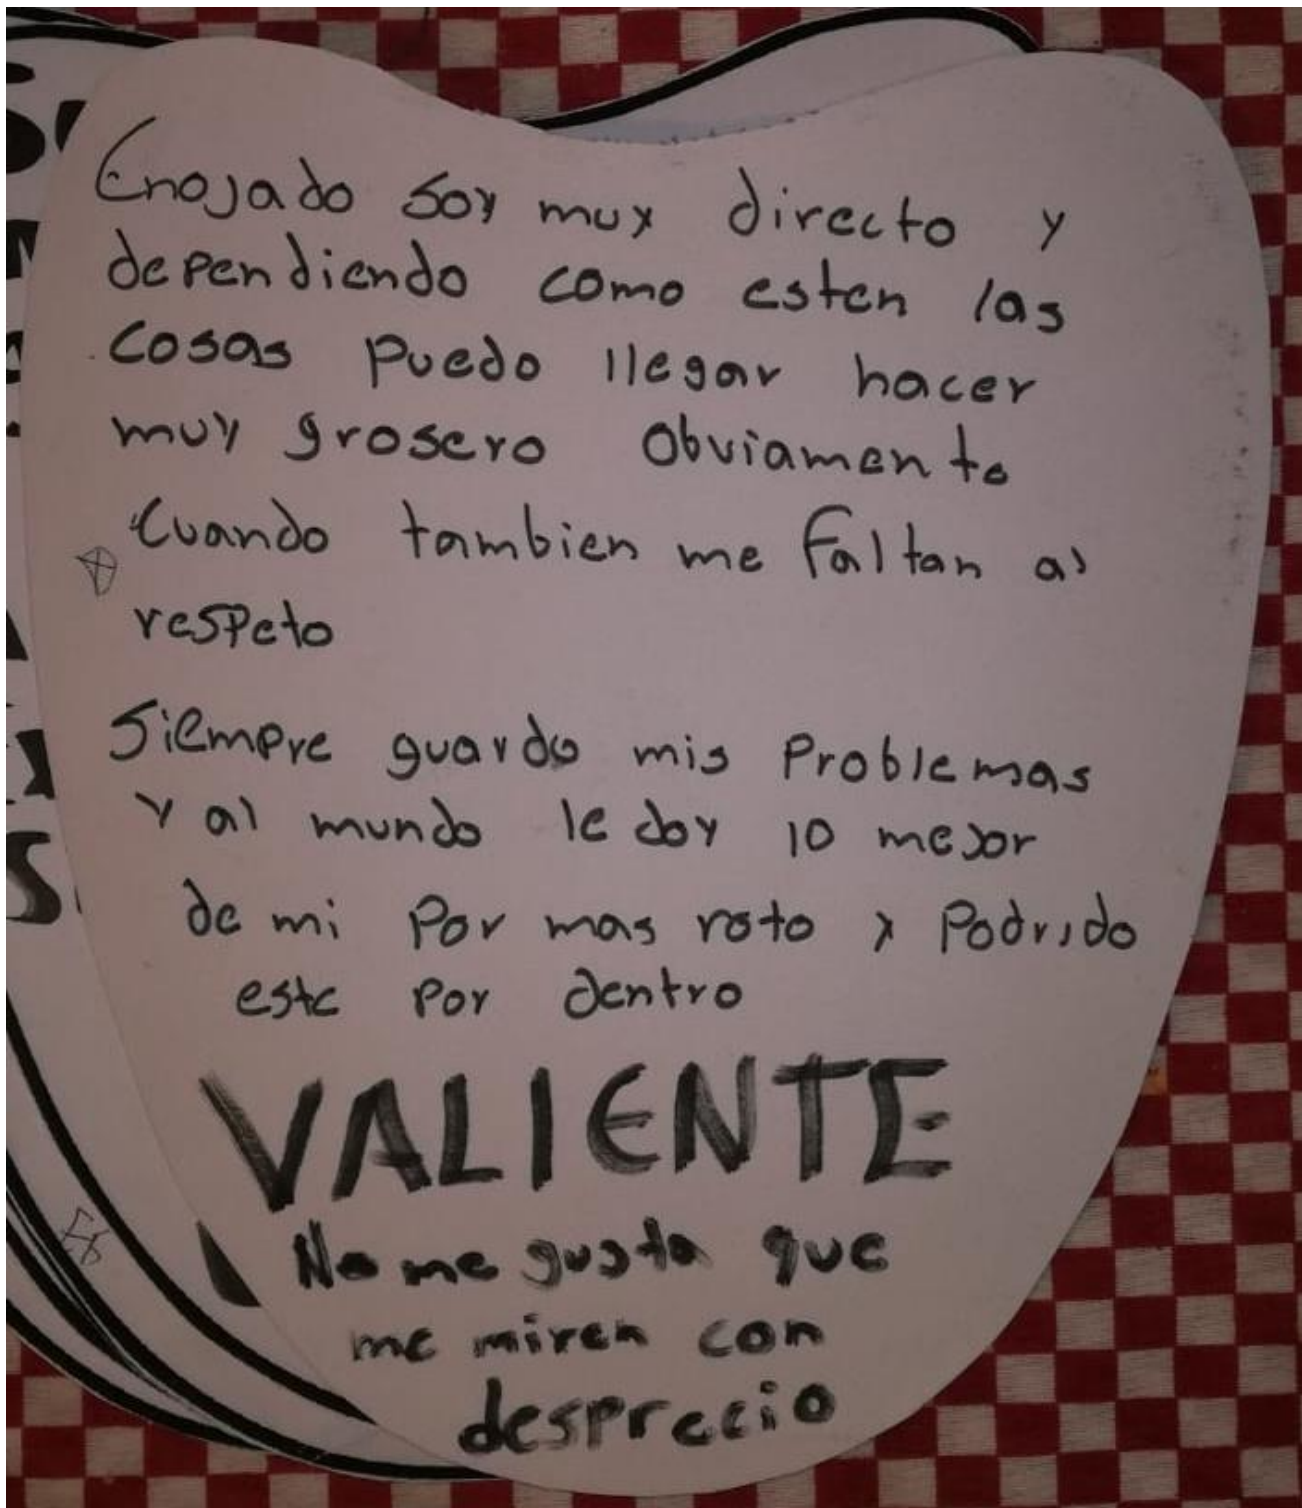 Enojado soy muy directo y
dependiendo como esten las
cosas puedo llegar hacer
muy grosero obviamente
cuando tambien me faltan al
respeto
Siempre guardo mis problemas
y al mundo le doy lo mejor
de mi por mas roto y podrido
este por dentro
VALIENTE
No me gusta que
me miren con
desprecio